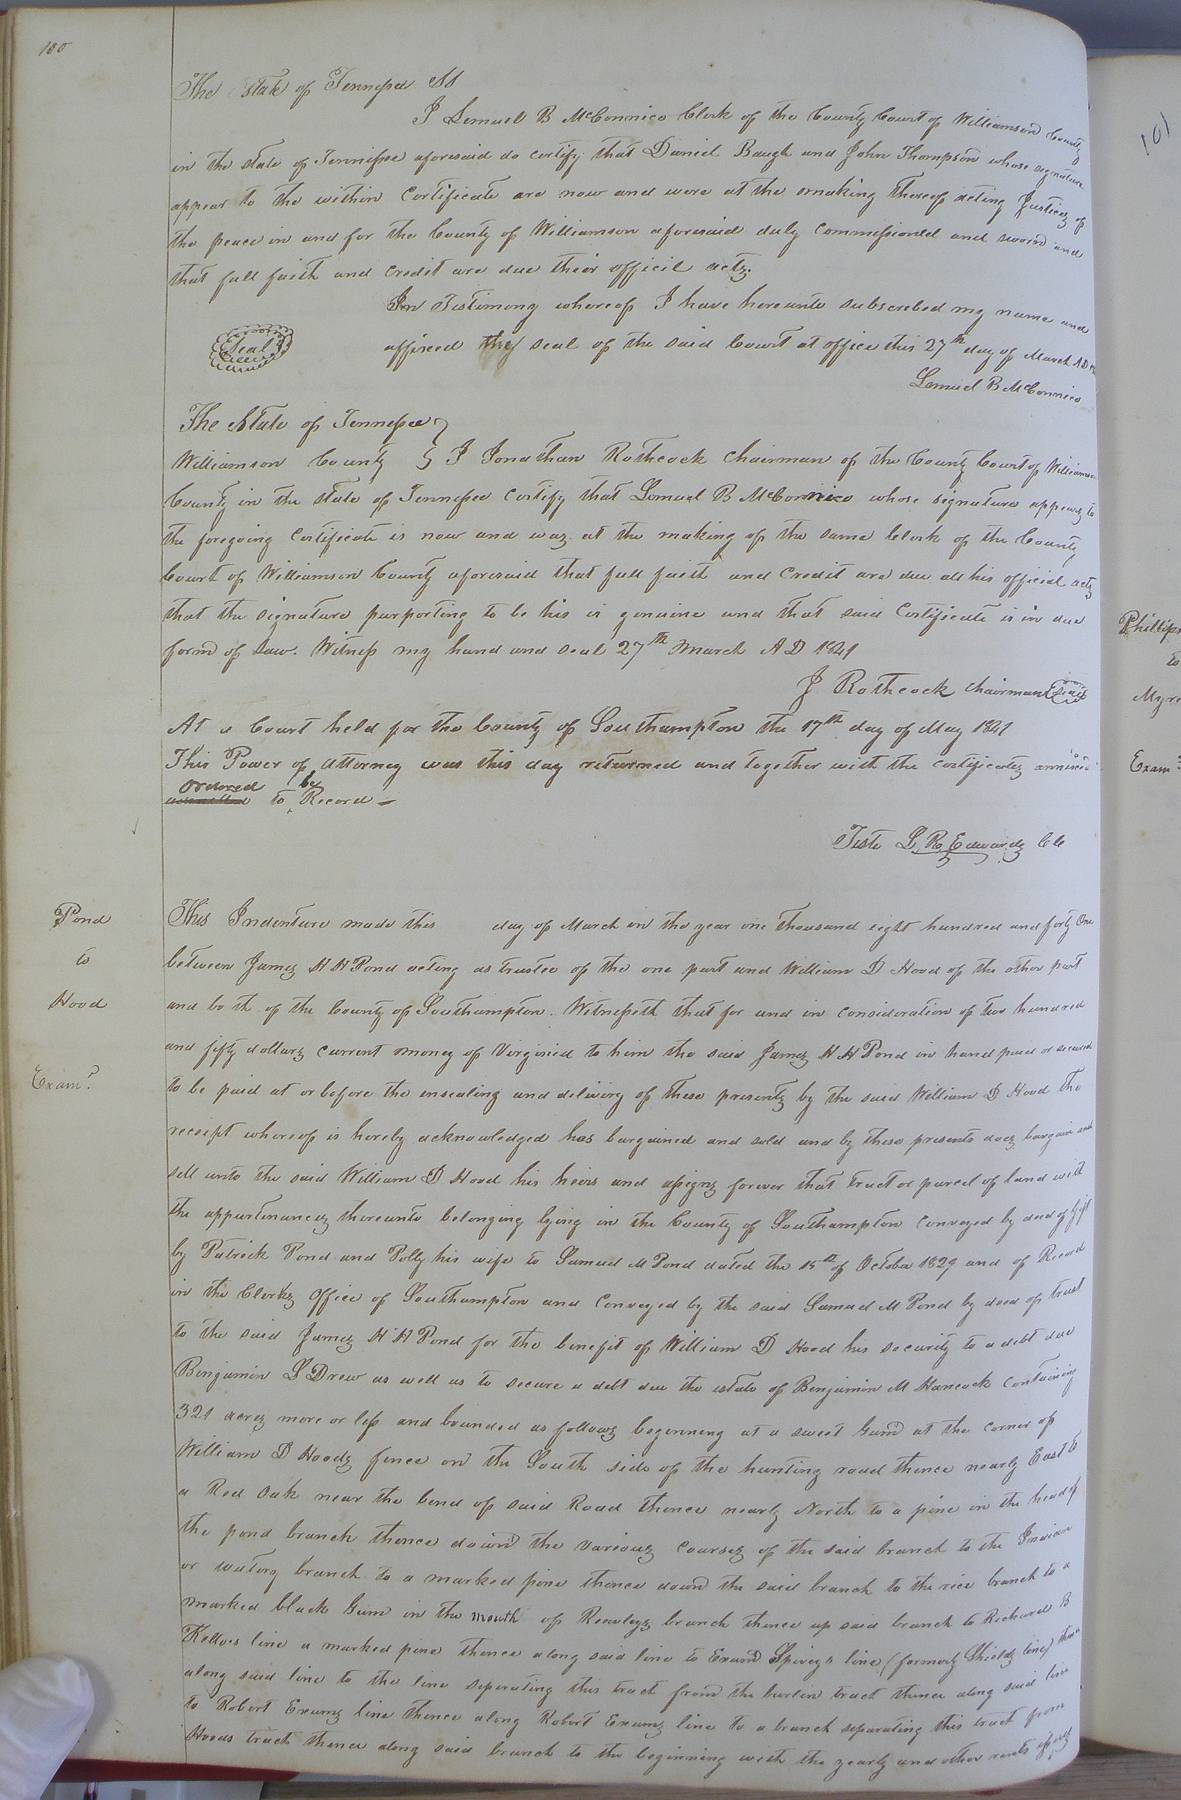 100
The State of Tennessee SS
I Lemuel B McConnico Clerk of the County Court of Williamson County
in the state of Tennessee aforesaid do certify that Daniel Baugh and John Thompson whose signature
appear to the within Certificate are now and were at the making thereof acting Justices of
the peace in and for the County of Williamson aforesaid duly commissioned and sworn and
that full faith and credit are due their officil acts.
In Testimony whereof I have hereunto subscribed my name and
Seal
affixed the seal of the said Court at office this 27th day of March AD
Lemuel B McConnico
The State of Tennessee
Williamson County } I Jonathan Rothcock Chairman of the County Court of Williamson
County in the state of Tennessee certify that Lemuel B McConnico whose signature appears to
the foregoing Certificate is now and was at the making of the same Clerk of the County
Court of Williamson County aforesaid that full faith and Credit are due all his official acts
that the signature purporting to be his is genuine and that said Certificate is in due
form of Law. Witness my hand and seal 27th March AD 1841
J Rothcock Chairman Seal
At a Court held for the County of Southampton the 17th day of May 1841
This Power of attorney was this day returned and together with the certificates annexed
ordered to be Record
Teste L. R. Edwards Clk
Pond
to
Hood
Exam?
This Indenture made this day of March in the year one thousand eight hundred and forty One
between James H H Pond acting as trustee of the one part and William D Hood of the other part
and both of the County of Southampton. Witnesseth that for and in consideration of two hundred
and fifty dollars current money of Virginia to him the said James H H Pond in hand paid or secured
to be paid at or before the ensealing and delivery of these presents by the said William D Hood the
receipt whereof is hereby acknowledged has bargained and sold and by these presents does bargain and
sell unto the said William D Hood his heirs and assigns forever that tract or parcel of land with
the appurtenances thereunto belonging lying in the County of Southampton conveyed by deed of Gift
by Patrick Pond and Polly his wife to Samuel M Pond dated the 15th of October 1829 and of Record
in the Clerks Office of Southampton and conveyed by the said Samuel M Pond by deed of trust
to the said James H H Pond for the benefit of William D Hood his security to a debt due
Benjamin S Drew as well as to secure a debt due the estate of Benjamin M Hancock Containing
321 acres more or less and bounded as follows beginning at a sweet Gum at the corner of
William D Hoods fence on the South side of the hunting road thence nearly East to
a Red Oak near the bend of said Road thence nearly North to a pine in the head of
the pond branch thence down the various courses of the said branch to the Indian
or watery branch to a marked pine thence down the said branch to the rice branch to a
marked black Gum in the mouth of Rowleys branch thence up said branch to Richard B
Kello's line a marked pine thence along said line to Exum Spivey's line (formerly Shields line) thence
along said line to the line seperating this tract from the tract thence along said line
to Robert Exums line thence along Robert Exums line to a branch separating this tract from
Hoods tract thence along said branch to the beginning with the yearly and other rents
101
Phillips
to
Exam?